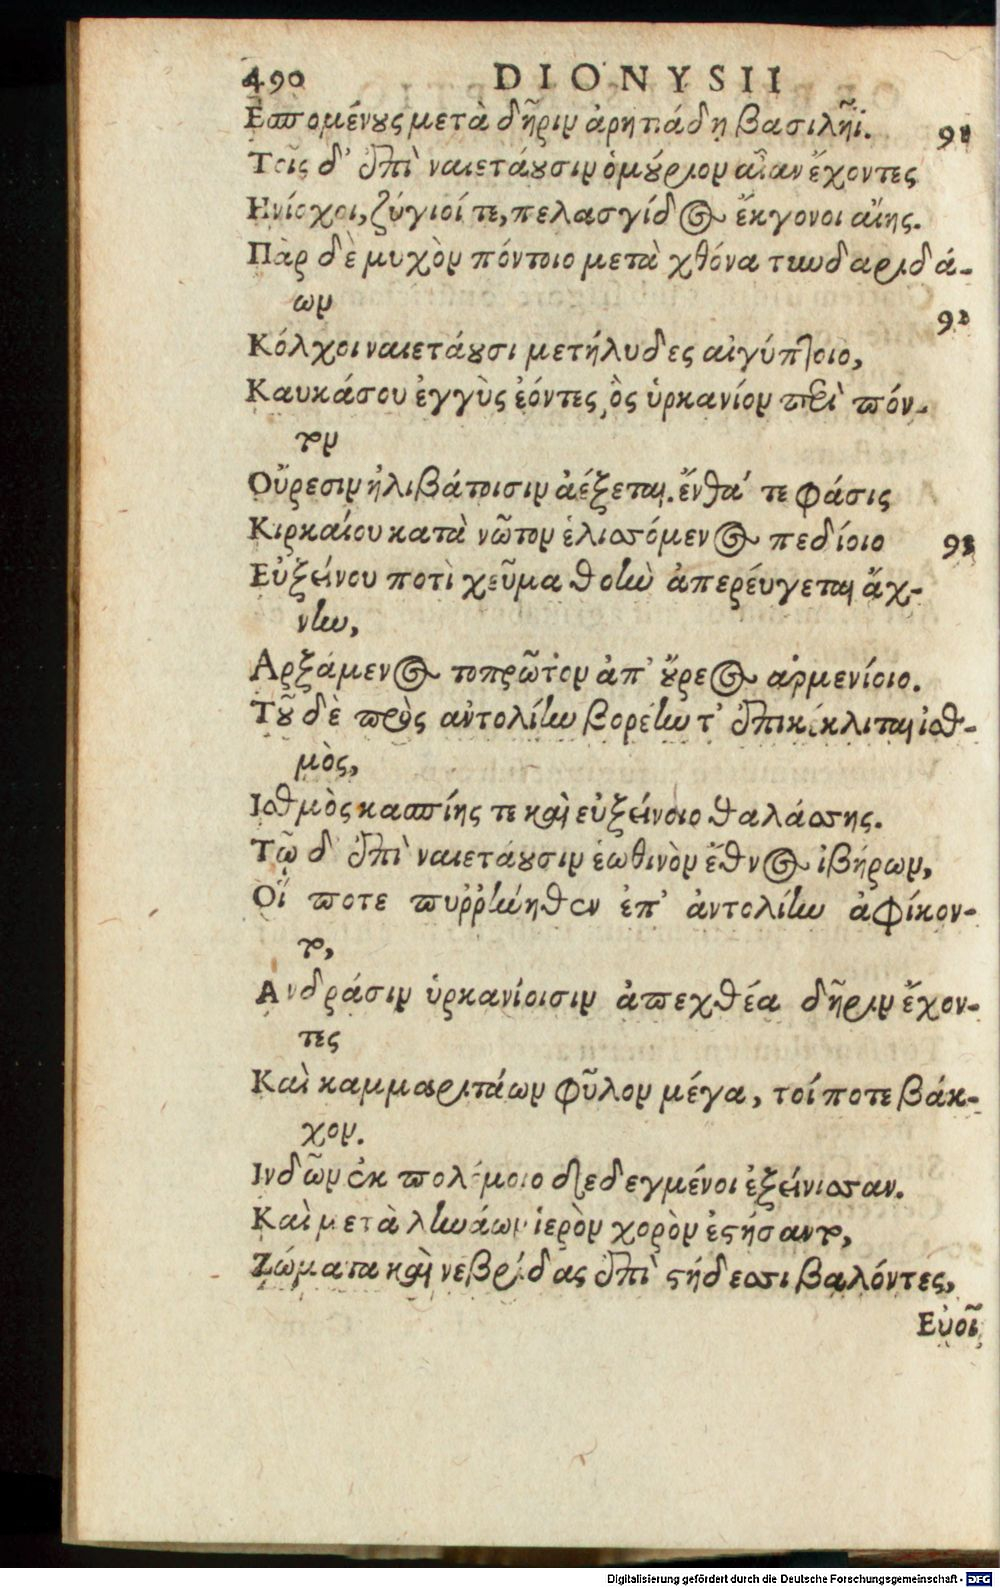 490 DIONYSII
Εσπομένους μετὰ δῆριν ἀρητιάδῃ βασιλῆϊ. 91
Τοῖς δ' ἐπὶ ναιετάουσιν ὁμούριον αἶαν ἔχοντες
Ηνίοχοι, ζύγιοί τε, πελασγίδος ἔκγονοι αἴης.
Πὰρ δὲ μυχὸν πόντοιο μετὰ χθόνα τυνδαριδά-
ων 92
Κόλχοι ναιετάουσι μετήλυδες αἰγύπτοιο,
Καυκάσου ἐγγὺς ἐόντες, ὃς ὑρκανίον περὶ πόν-
τον
Οὔρεσιν ἠλιβάτοισιν ἀέξεται. ἔνθα τε φάσις
Κιρκαίου κατὰ νῶτον ἑλισσόμενος πεδίοιο 93
Εὐξείνου ποτὶ χεῦμα θοὴν ἀπερέυγεται ἄχ-
νην,
Αρξάμενος τοπρῶτον ἀπ' οὔρεος ἀρμενίοιο.
Τοῦ δὲ πρὸς ἀντολίην βορέην τ' ἐπικέκλιται ἰσθ-
μὸς,
Ισθμὸς κασπίης τε καὶ εὐξείνοιο θαλάσσης.
Τῷ δ' ἐπὶ ναιετάουσιν ἑωθινὸν ἔθνος ἰβήρων,
Οἵ ποτε πυῤῥήνηθεν ἐπ' ἀντολίην ἀφίκον-
το,
Ανδράσιν ὑρκανίοισιν ἀπεχθέα δῆριν ἔχον-
τες
Καὶ καμμαριτάων φῦλον μέγα, τοί ποτε βάκ-
χον.
Ινδῶν ἐκ πολέμοιο δεδεγμένοι ἐξείνισσαν.
Καὶ μετὰ ληνάων ἱερὸν χορὸν ἐστήσαντο,
Ζώματα καὶ νεβρίδας ἐπὶ στήθεσσι βαλόντες,
Εὐοῖ
Digitalisierung gefördert durch die Deutsche Forschungsgemeinschaft - DFG